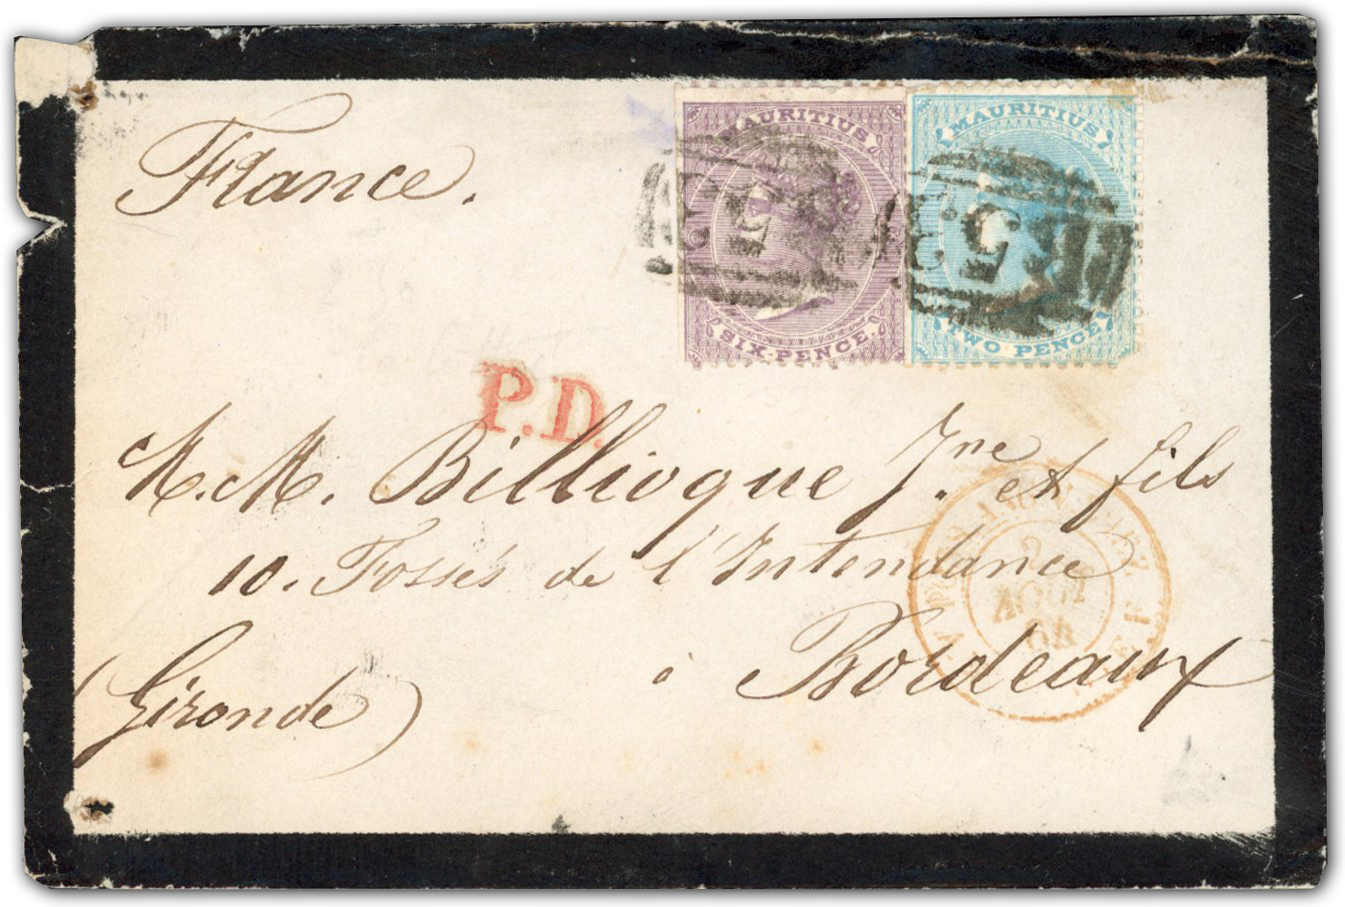 France.
MAURITIUS
SIX-PENCE.
MAURITIUS
TWO PENCE
B 53
P.D.
M.M. Billioque Jne et fils
10. Fossés de l'Intendance
à Bordeaux
(Gironde)
AOUT